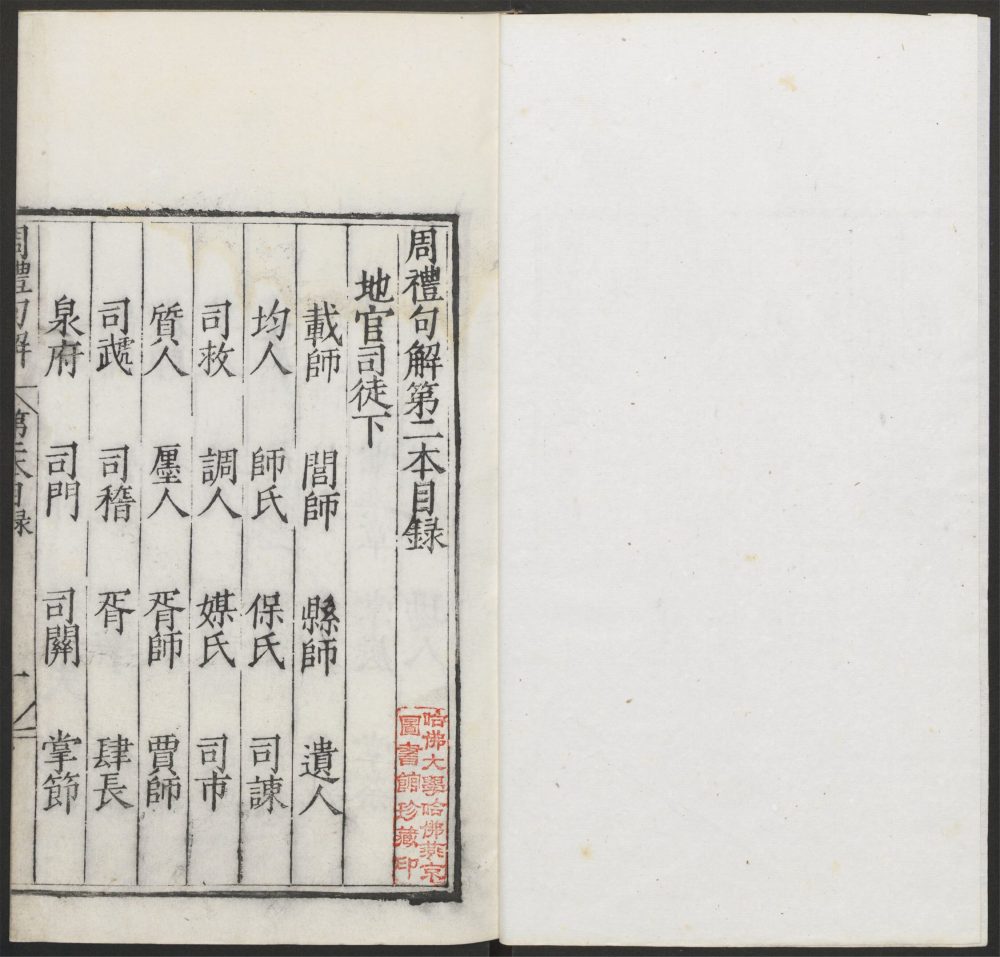 周禮句解第二本目録
地官司徒下
載師 閭師 縣師 遺人
均人 師氏 保氏 司諫
司救 調人 媒氏 司市
質人 廛人 胥師 賈師
司虣 司稽 胥 肆長
泉府 司門 司關 掌節
周禮句解 第二本目録 一
哈佛大學哈佛燕京
圖書館珍藏印